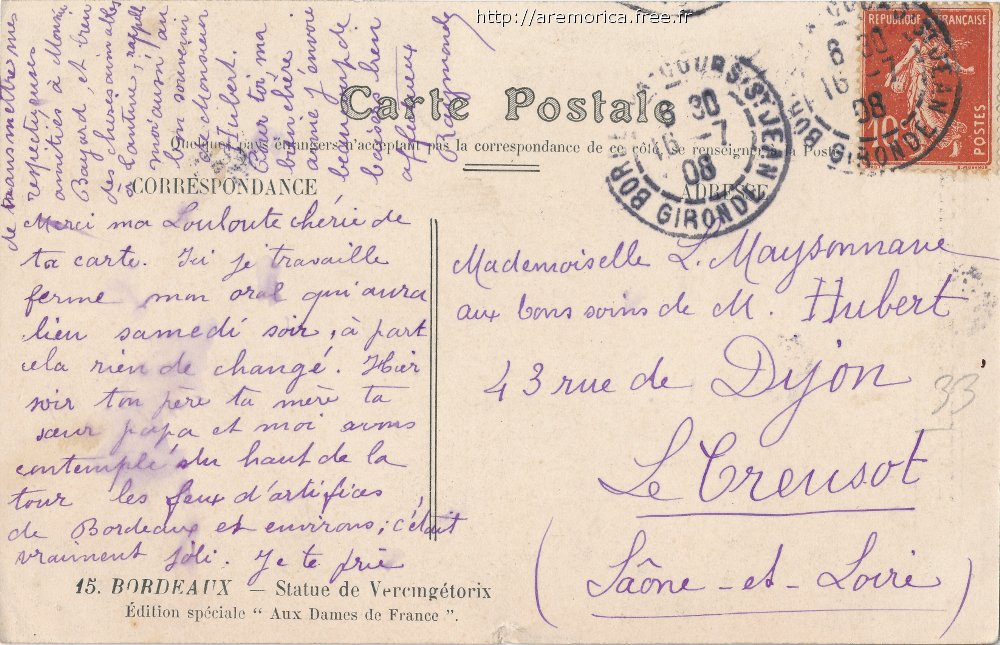 http://aremorica.free.fr
Carte Postale
Quelques pays étrangers n'acceptant pas la correspondance de ce côté, se renseigner à la Poste
CORRESPONDANCE
Merci ma Louloute chérie de
ta carte. Ici je travaille
ferme mon oral qui aura
lieu samedi soir, à part
cela rien de changé. Hier
soir ton père ta mère ta
sœur papa et moi avons
contemplé du haut de la
tour les feux d'artifices
de Bordeaux et environs; c'était
vraiment joli. Je te prie
de transmettre mes
respectueuses
amitiés à
Bayard, et bien
des choses aimables
à rappelle
moi aussi au
bon souvenir
de Monsieur
Hubert.
Pour toi ma
bien chère
amie j'envoie
beaucoup de
baisers bien
affectueux
Raymonde
15. BORDEAUX — Statue de Vercingétorix
Édition spéciale " Aux Dames de France ".
ADRESSE
Mademoiselle L. Maysonnave
aux bons soins de M. Hubert
43 rue de Dijon
Le Creusot
(Saône-et-Loire)
33
BORDEAUX COURS ST JEAN
6 30
16 -7
08
GIRONDE
RÉPUBLIQUE FRANÇAISE
10c
POSTES
COURS ST JEAN
6 30
16 -7
08
GIRONDE